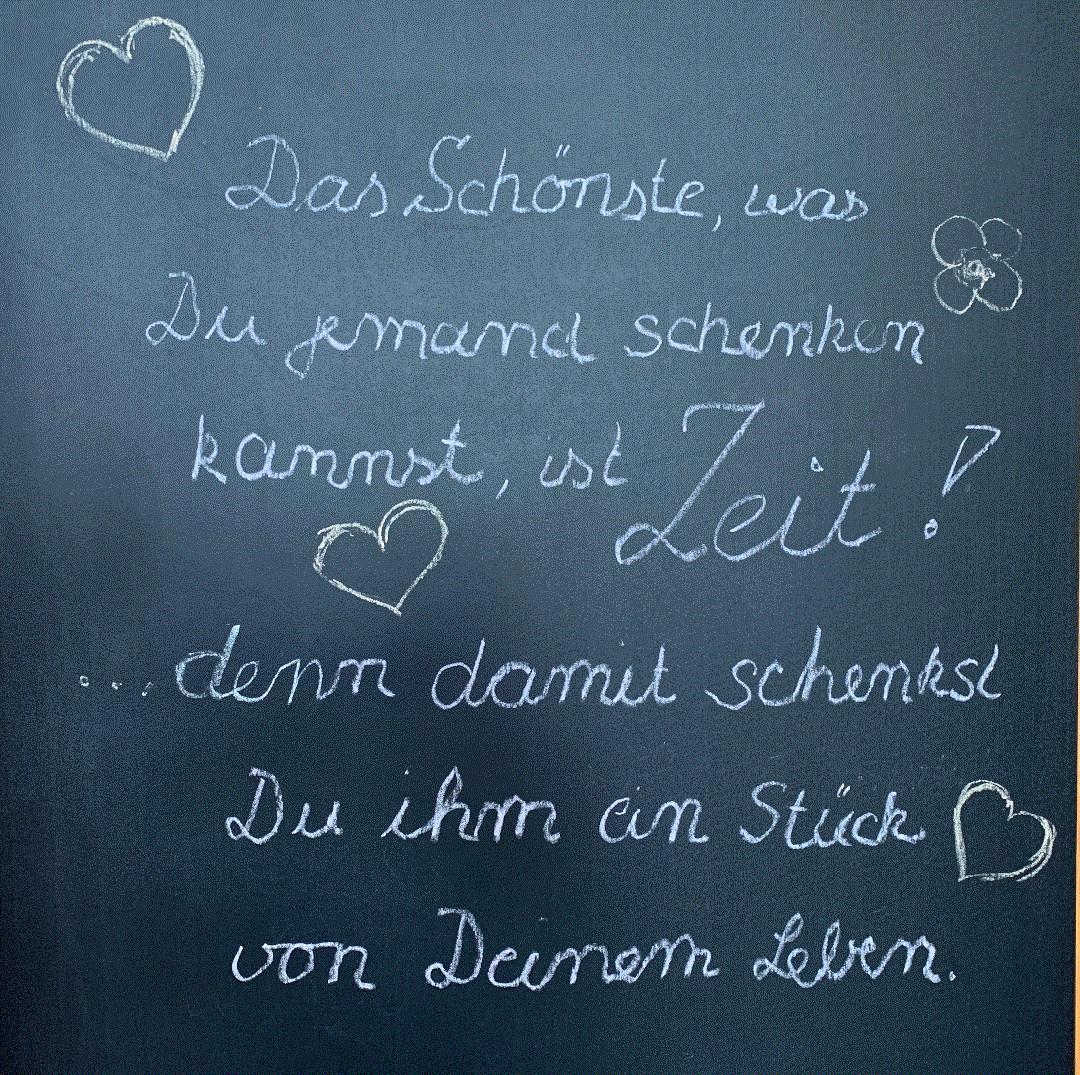 Das Schönste, was
Du jemand schenken
kannst, ist Zeit!
...denn damit schenkst
Du ihm ein Stück
von Deinem Leben.